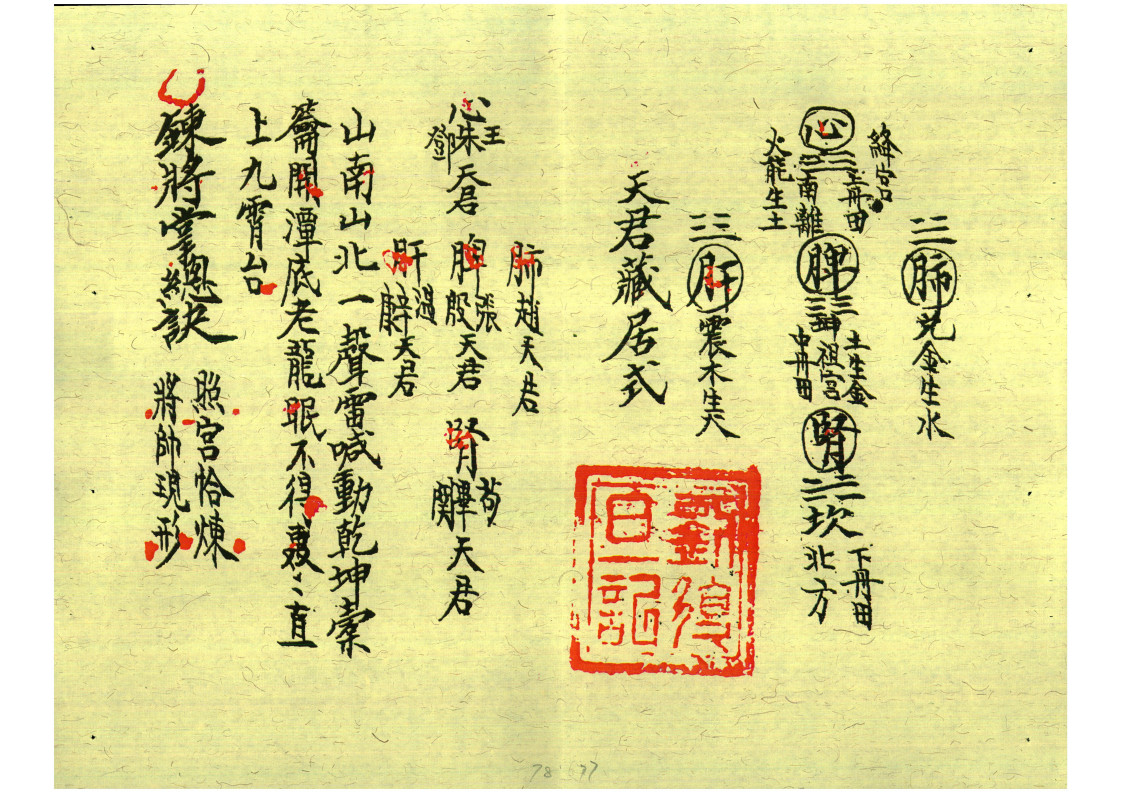 ☱ 肺 兌金生水
絳宮
心 ☲ 南離
三丹田
火龍生土
脾 ☷ 坤祖宮
土生金
中丹田
腎 ☵ 坎
下丹田
北方
☳ 肝 震木生火
天君藏居式
劉復直一記
肺 趙天君
心 王朱鄧天君
脾 張殷天君
腎 苟畢關天君
肝 溫辛天君
山南山北一聲雷喊動乾坤橐
籥開潭底老龍眠不得夜々直
上九霄台
鍊將掌總訣
照宮恰煉
將帥現形
78 77